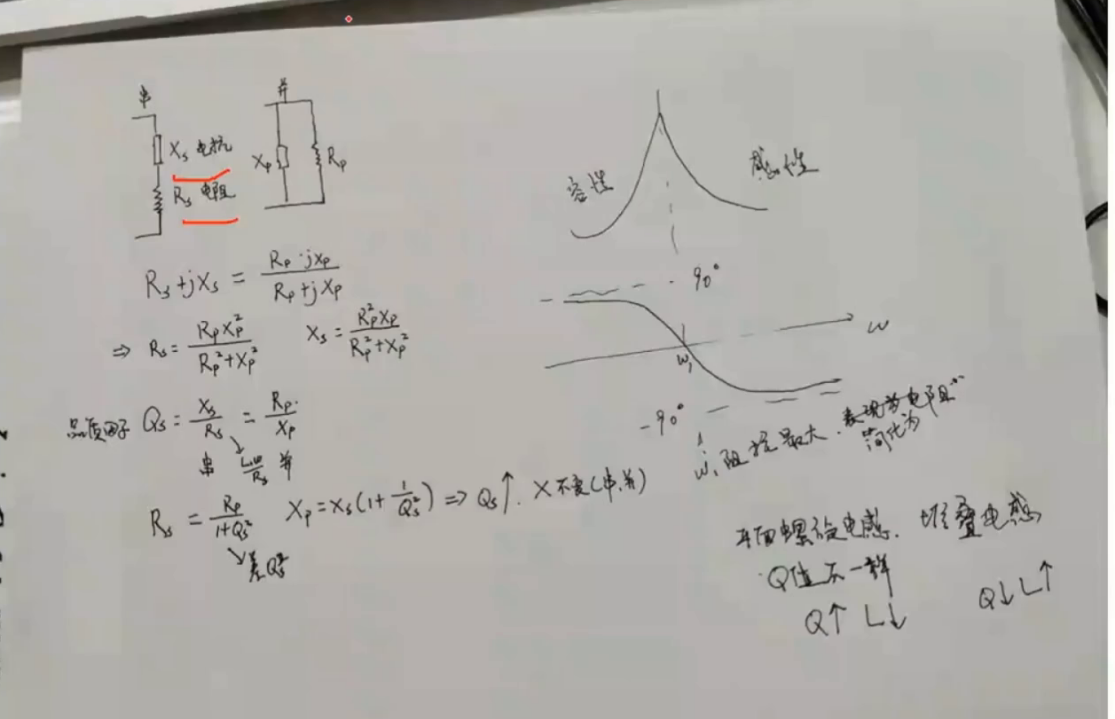 串
并
X_s 电抗
R_s 电阻
X_p
R_p
R_s+jX_s = \frac{R_p·jX_p}{R_p+jX_p}
⇒ R_s = \frac{R_pX_p^2}{R_p^2+X_p^2} X_s = \frac{R_p^2X_p}{R_p^2+X_p^2}
品质因子 Q_s = \frac{X_s}{R_s} = \frac{R_p}{X_p}
串 \frac{Lω}{R_s} 并
R_s = \frac{R_p}{1+Q_s^2} X_p = X_s(1+\frac{1}{Q_s^2}) ⇒ Q_s↑. X不变(串.并)
差Q_s^2
容性
感性
90°
ω
ω_1
-90°
ω_1 阻抗最大. 表现为电阻
简化为
平面螺旋电感. 堆叠电感
Q值不一样
Q↑ L↓ Q↓ L↑